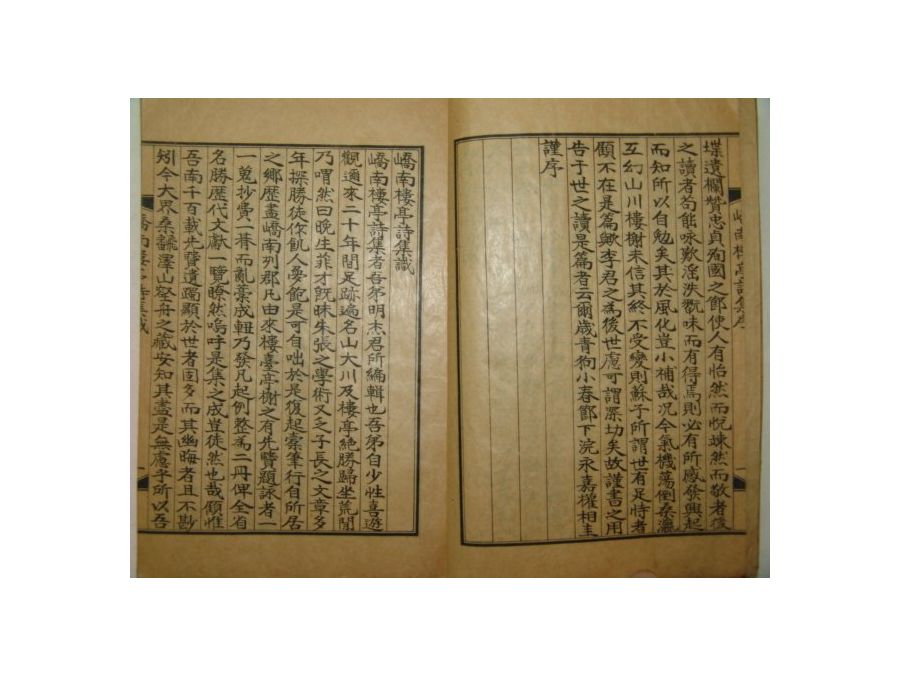 堞遺欄贊忠貞殉國之節使人有怡然而悅竦然而敬者後
之讀者苟能咏歎滛泆翫味而有得焉則必有所感發興起
而知所以自勉矣其於風化豈小補哉况今氣機蕩倒桑瀛
互幻山川樓榭未信其終不受變則蘇子所謂世有足恃者
顧不在是篇歟李君之為後世慮可謂深切矣故謹書之用
告于世之讀是篇者云爾歲青狗小春節下浣永嘉權相圭
謹序
嶠南樓亭詩集序
嶠南樓亭詩集識
嶠南樓亭詩集者吾弟明杰君所編輯也吾弟自少性喜遊
觀適來二十年間足跡遍名山大川及樓亭絶勝歸坐荒閒
乃喟然曰晚生菲才旣昧朱張之學術又乏子長之文章多
年探勝徒作飢人夢飽是可自咄於是復起槖筆行自所居
之鄉歷盡嶠南列郡凡由來樓臺亭榭之有先賢題詠者一
一蒐抄費一朞而亂藁成軸乃發凡起例整為二冊俾全省
名勝歷代文獻一覽瞭然嗚呼是集之成豈徒然也哉顧惟
吾南千百載先賢遺躅顯於世者固多而其幽晦者且不尠
矧今大界桑飜澤山壑舟之藏安知其盡是無慮乎所以吾
嶠南樓亭詩集識